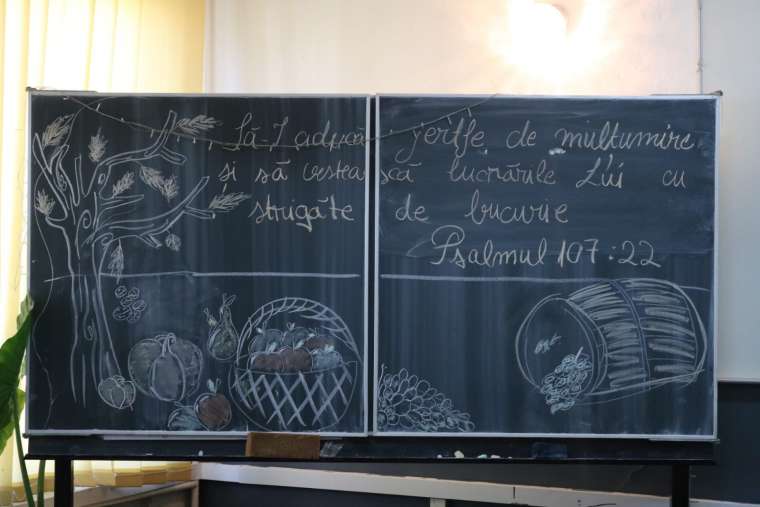 Să-I aducă jertfe de mulțumire
și să vestească lucrările Lui cu
strigăte de bucurie
Psalmul 107:22